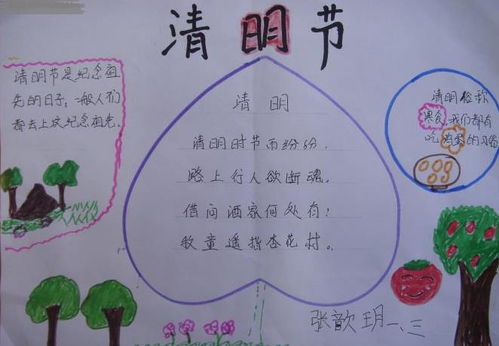 清明节
清明节是纪念祖
先的日子，一般人们
都去上坟纪念祖先。
清明
清明时节雨纷纷，
路上行人欲断魂。
借问酒家何处有？
牧童遥指杏花村。
清明俗称
寒食，我们都有
吃鸡蛋的习俗
张歆玥一、三